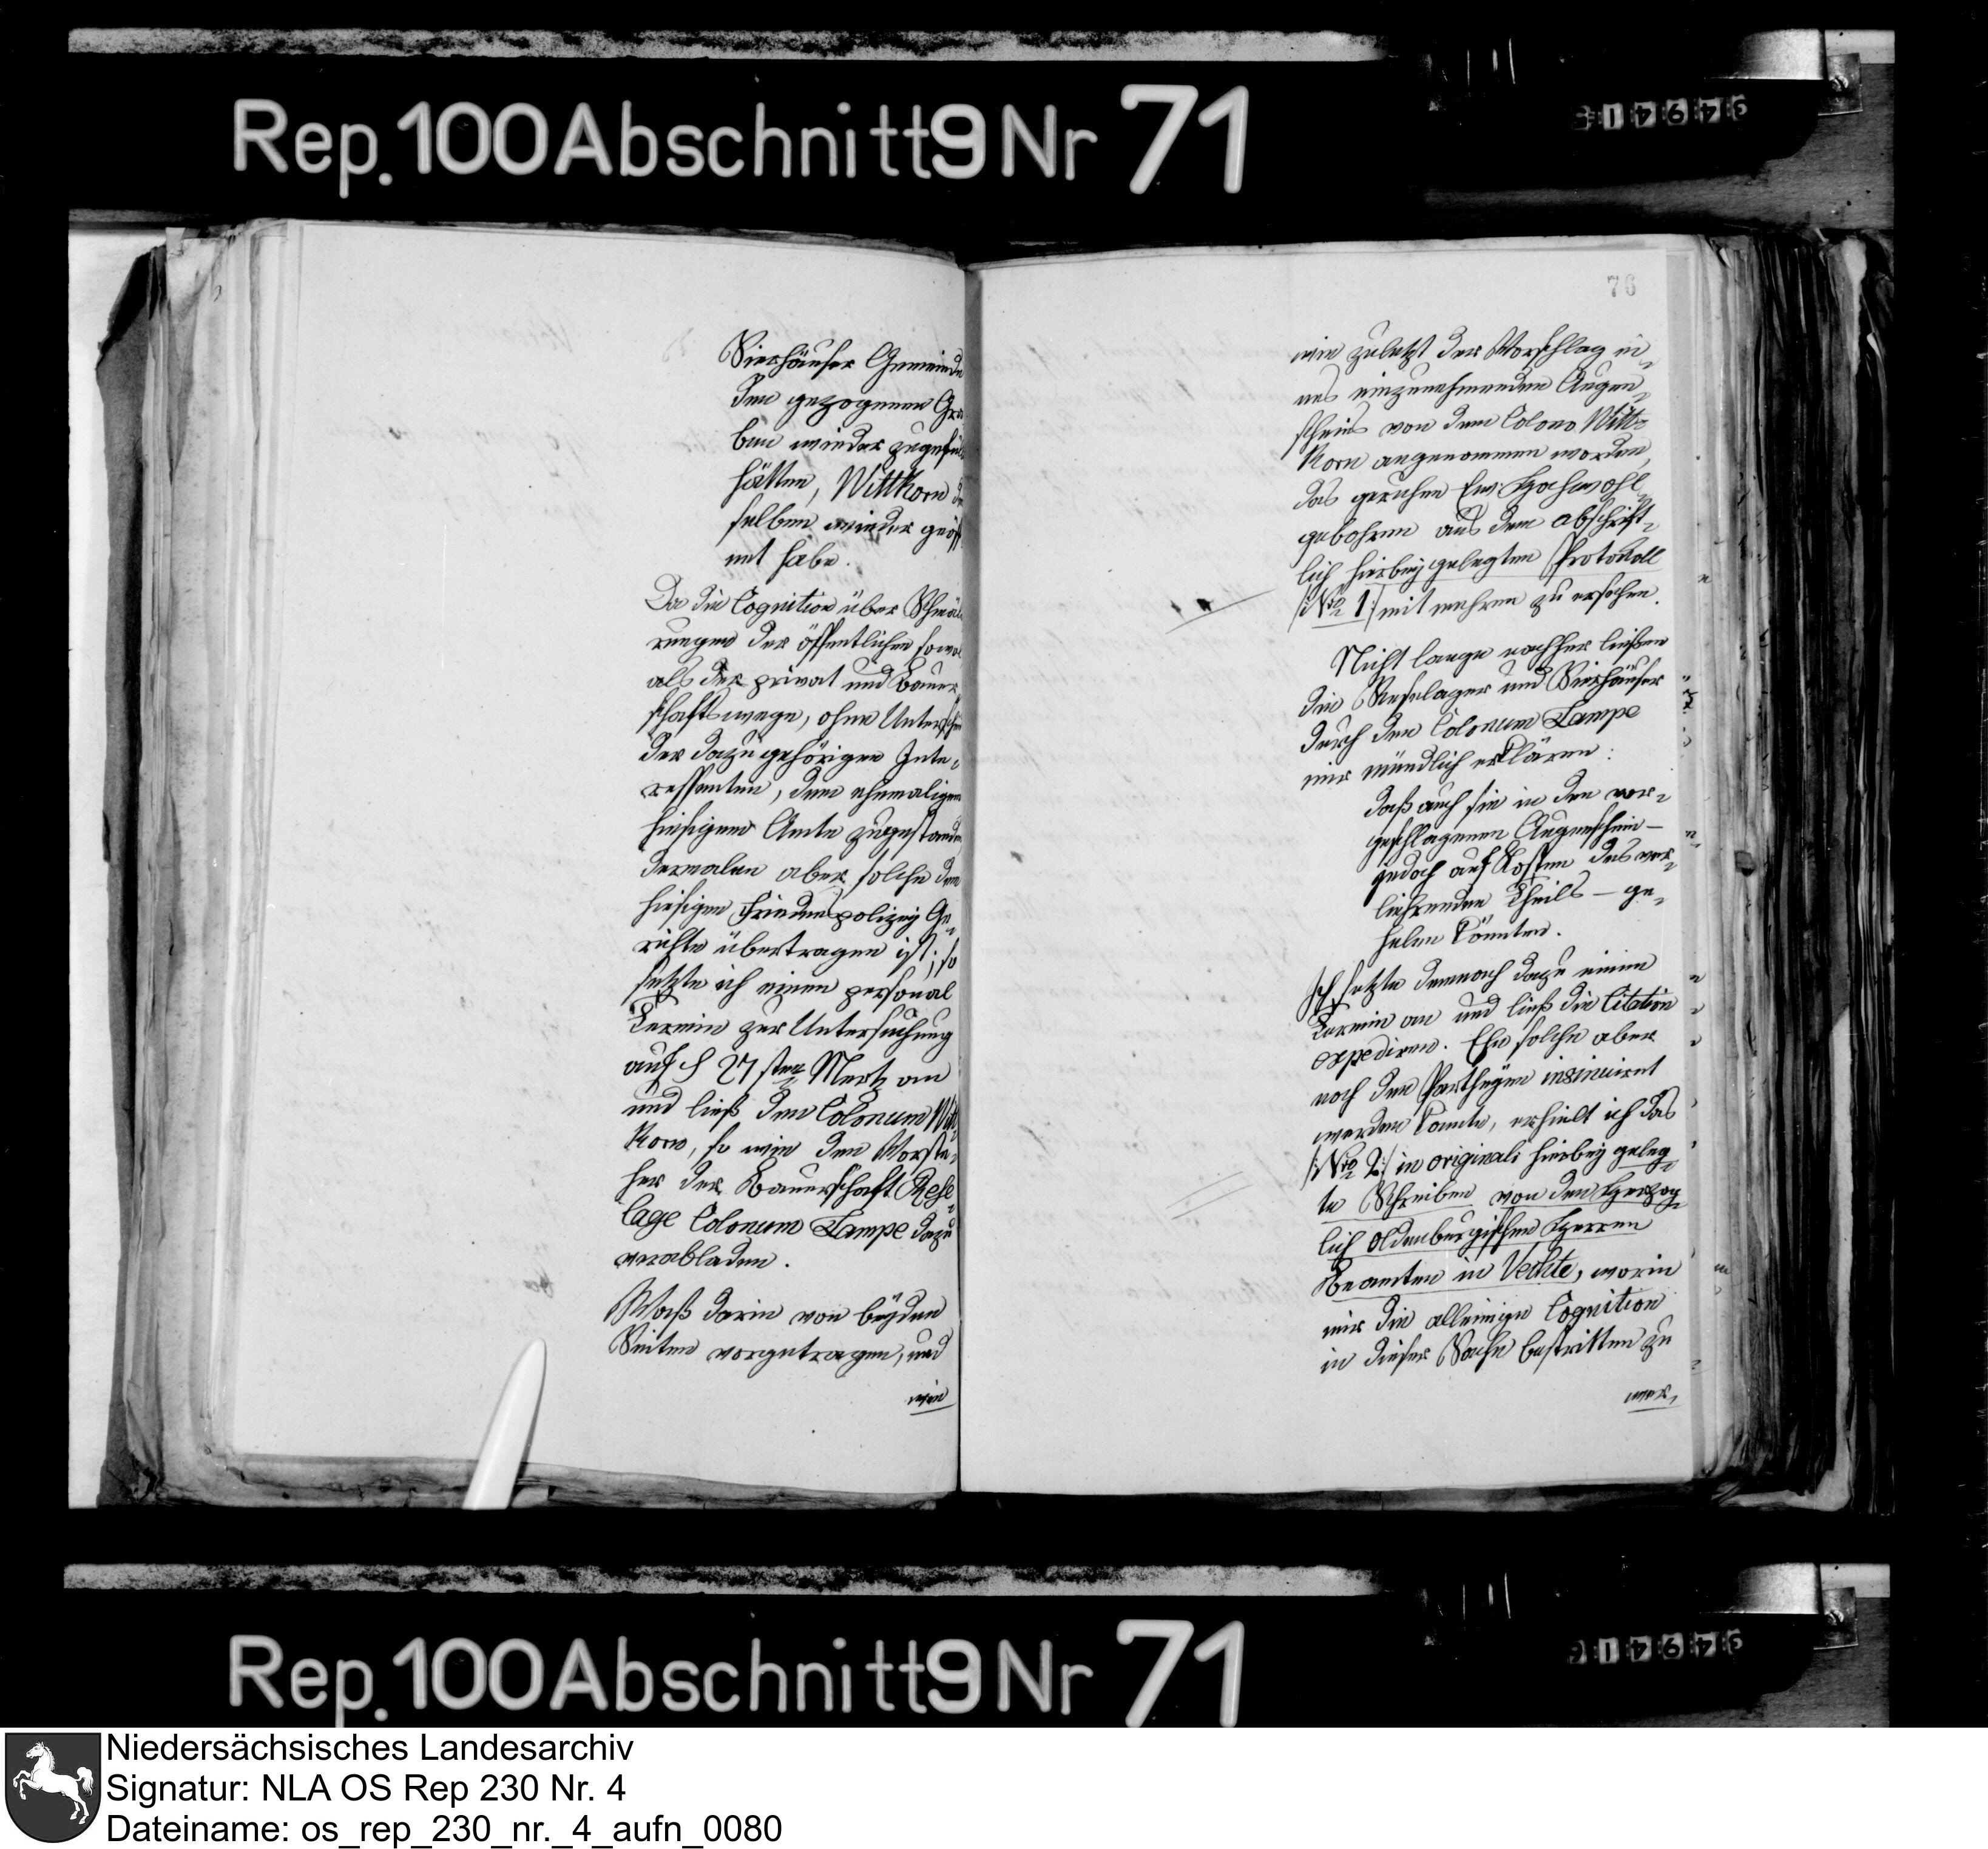 Rep. 100 Abschnitt 9 Nr 71
Sierhäuser Gemeinde
den gezogenen Gra
ben wieder zugefül
hätten, Wittkorn de
selben wieder geöff
net habe.
Da die Cognition über Schmäle
rungen der öffentlichen sowol
als der privat und Bauer
schaftswege, ohne Unterschie
der dazu gehörigen Inte-
ressenten, dem ehemaligen
hiesigen Amte zugestanden
dermalen aber solche dem
hiesigen Friedenspolizey Ge-
richte übertragen ist; so
setzte ich einen personal
Termin zur Untersuchung
auf d 27sten Mertz an
und ließ den Colonum Witt-
korn, so wie den Vorste-
her der Bauerschaft Rese-
lage Colonum Lampe dazu
verabladen.
Waß darin von beyden
Seiten vorgetragen, und
wie
76
wie zuletzt der Vorschlag ei-
nes einzunehmenden Augen-
scheins von dem Colono Witt-
korn angenommen worden,
das geruhen Ew. Hochwohl-
gebohren aus dem abschrift-
lich hierbey gelegten Protokoll
/: Nro 1 :/ mit mehren zu ersehen.
Nicht lange nachher ließen
die Reselager und Sierhäuser
durch den Colonum Lampe
mir mündlich erklären:
daß auch sie in den vor-
geschlagenen Augenschein –
jedoch auf Kosten des ver-
liehrenden Theils – ge-
helen könnten.
Ich setzte demnach dazu einen
Termin an und ließ die Citation
expediren. Ehe solche aber
noch den Partheyen insinuiret
werden konnte, erhielt ich das
/: Nro 2 :/ in originali hierbey geleg-
te Schreiben von den Herzog-
lich Oldenburgischen Herren
Beamten in Vechte, worin
mir die alleinige Cognition
in dieser Sache bestritten zu
wer-
Rep. 100 Abschnitt 9 Nr 71
Niedersächsisches Landesarchiv
Signatur: NLA OS Rep 230 Nr. 4
Dateiname: os_rep_230_nr._4_aufn_0080